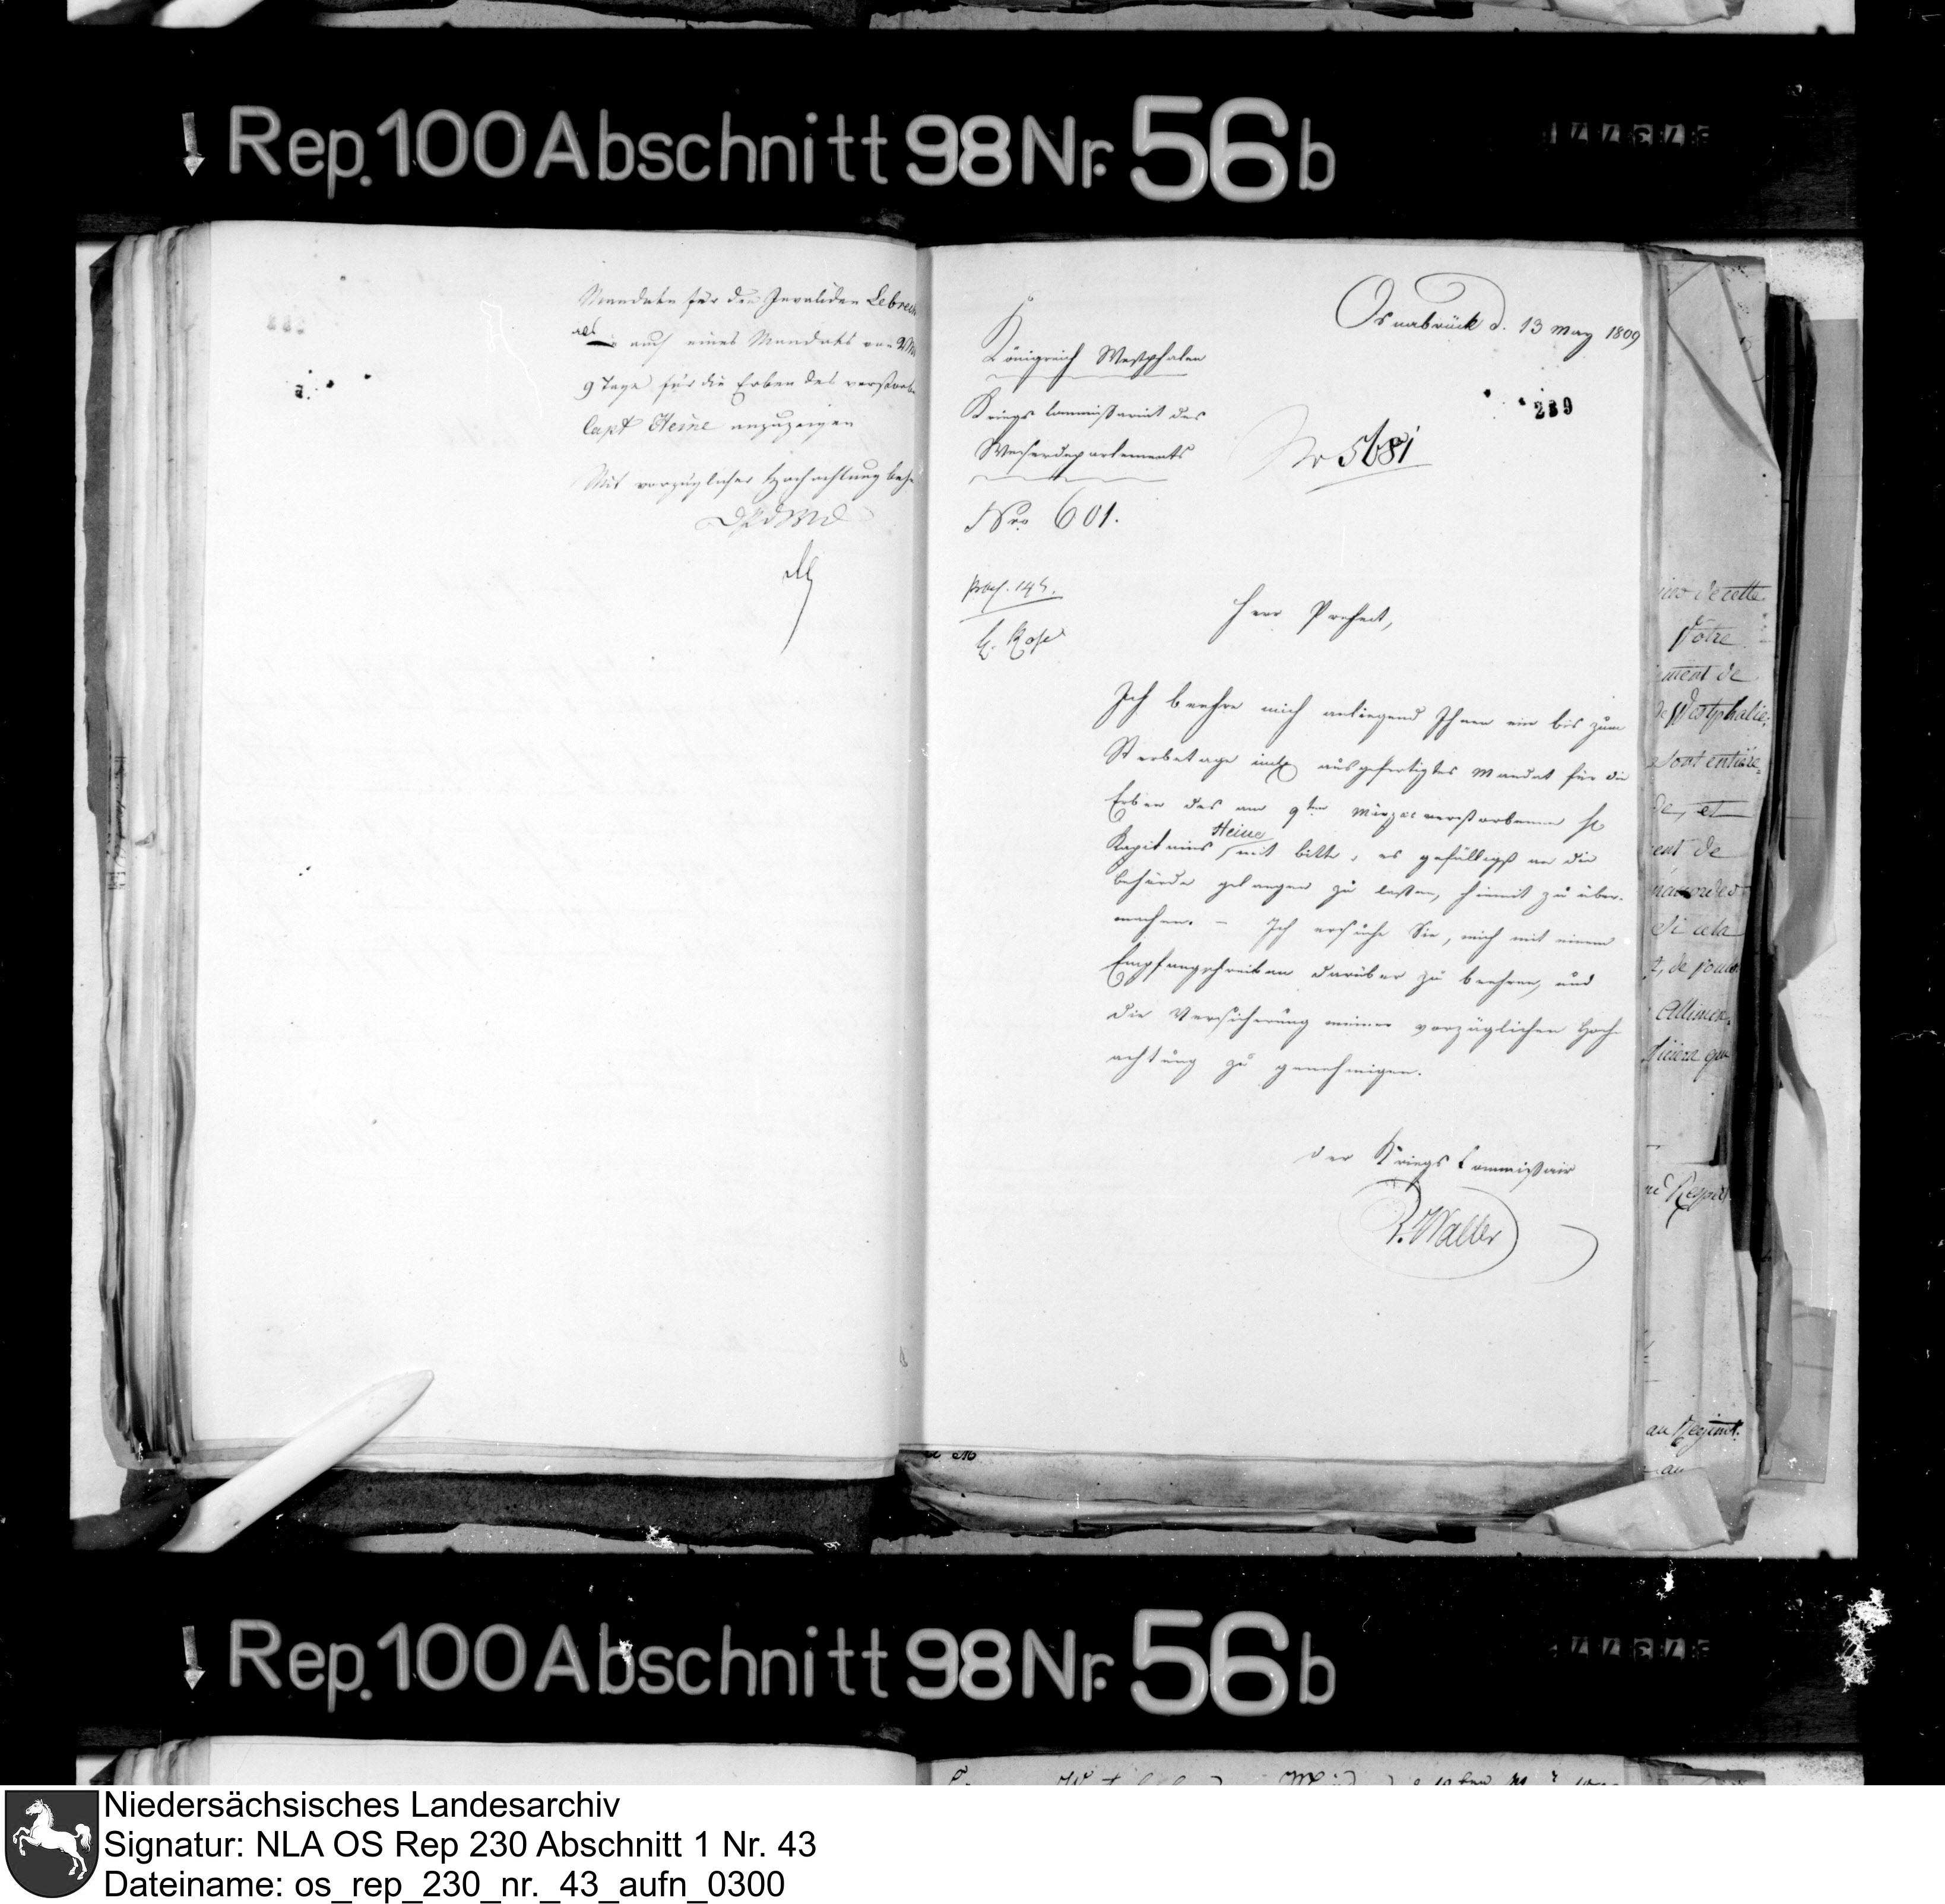 Rep. 100 Abschnitt 98 Nr. 56 b
Mandats für den Invaliden Lebrech
als auch eines Mandats von 2 M
9 Tage für die Erben des verstorbe
Capt Heine anzuzeigen
Mit vorzüglicher Hochachtung
Osnabrück d. 13 May 1809
Königreich Westphalen
Kriegs Commissariat des
Weserdepartements
239
No 5681
Nro. 601.
Herr Prefect,
Ich beehre mich anliegend Ihnen ein bis zum
Sterbetage incl. ausgefertigtes Mandat für die
Erben des am 9ten März verstorbenen H.
Kapitains Heine mit bitte, es gefälligst an die
Behörde gelangen zu lassen, hiemit zu über-
machen. – Ich ersuche Sie, mich mit einem
Empfangschreiben darüber zu beehren, und
die Versicherung meiner vorzüglichen Hoch-
achtung zu genehmigen.
der Kriegs Commissair
Walter
de cette
Votre
ment de
de Westphalie
sont entière=
de, et
ent de
Si cela
au Regimt.
au
Rep. 100 Abschnitt 98 Nr. 56 b
Niedersächsisches Landesarchiv
Signatur: NLA OS Rep 230 Abschnitt 1 Nr. 43
Dateiname: os_rep_230_nr._43_aufn_0300